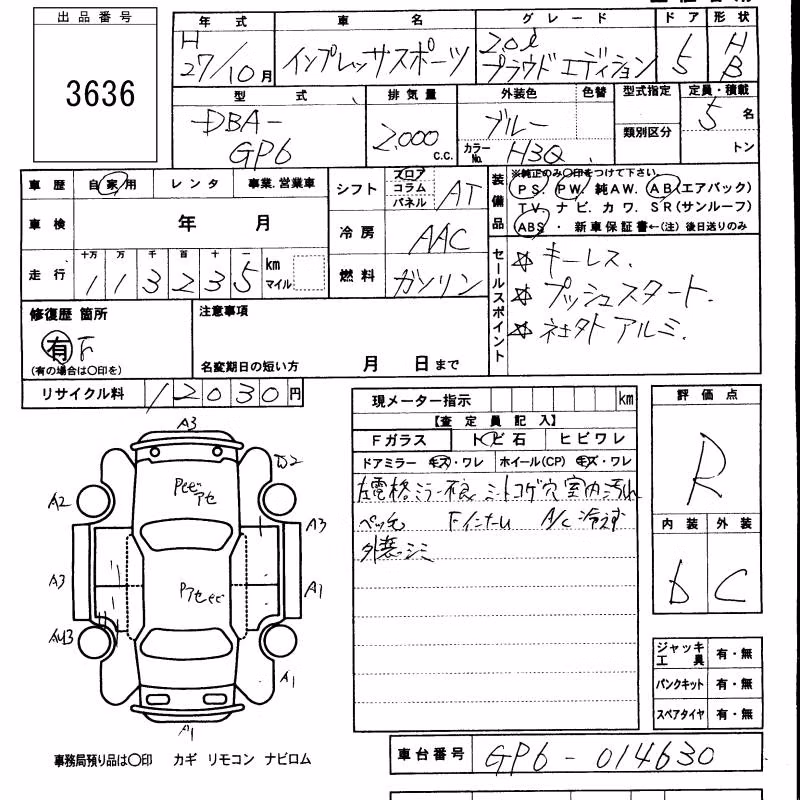 出品番号
3636
年式 車名 グレード ドア 形状
H 27/10月 インプレッサスポーツ 2.0ℓ プラウドエディション 5 HB
型式 排気量 外装色 色替 型式指定 定員・積載
DBA-GP6 2,000 c.c. ブルー カラーNo. H3Q 類別区分 5名 トン
車歴 自家用 レンタ 事業.営業車
車検 年 月
走行 十万 万 千 百 十 一 km マイル
113235
シフト フロア コラム パネル AT
冷房 AAC
燃料 ガソリン
装備品 ※純正のみ〇印をつけて下さい
PS. PW. 純AW. AB(エアバック)
TV. ナビ. カワ. SR(サンルーフ)
ABS ・ 新車保証書←(注)後日送りのみ
セールスポイント
☆ キーレス.
☆ プッシュスタート.
☆ 社外アルミ.
修復歴 箇所
有 F
(有の場合は〇印を)
注意事項
名変期日の短い方 月 日まで
リサイクル料 12030円
現メーター指示 km
【査定員記入】
Fガラス トビ石 ヒビワレ
ドアミラー キズ・ワレ ホイール(CP) キズ・ワレ
ミラー不良 シートコゲ穴 室内汚れ
Fインナーレ A/C冷えず
外装シミ
評価点
R
内装 外装
D C
ジャッキ工具 有・無
パンクキット 有・無
スペアタイヤ 有・無
A3
A2
A3
A3
A1
A1
A1
事務局預り品は〇印 カギ リモコン ナビロム
車台番号 GP6-014630